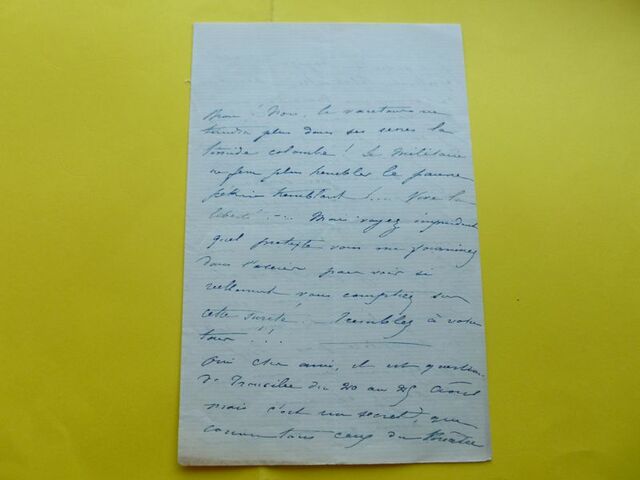 Non! Non, le vautour ne
tiendra plus dans ses serres la
timide colombe! Le militaire
ne fera plus trembler le pauvre
pékin tremblant!.... Vive la
liberté!.... Mais voyez imprudent
quel prétexte vous me fournissez
dans l'assuer pour voir si
réellement vous comptiez sur
cette sureté! Tremblez à votre
tour!!!
Oui cher ami, il est question
de du 20 au 25 Août
mais c'est un secret, que
tous ceux du théâtre